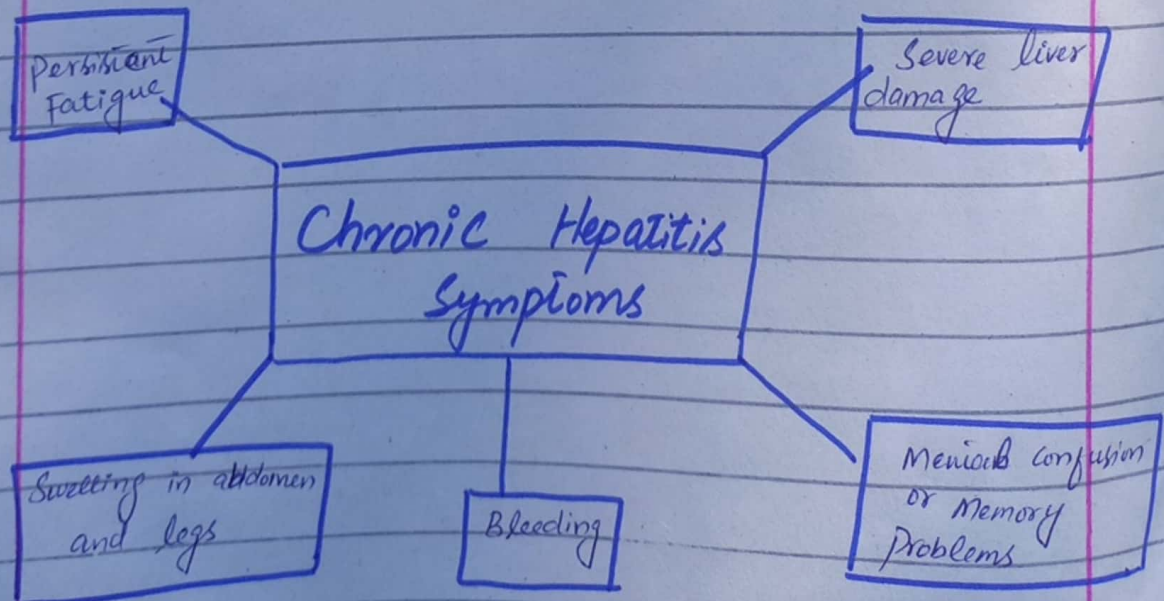 Persistent
Fatigue
Severe liver
damage
Chronic Hepatitis
Symptoms
Swelling in abdomen
and legs
Bleeding
Mental confusion
or Memory
Problems